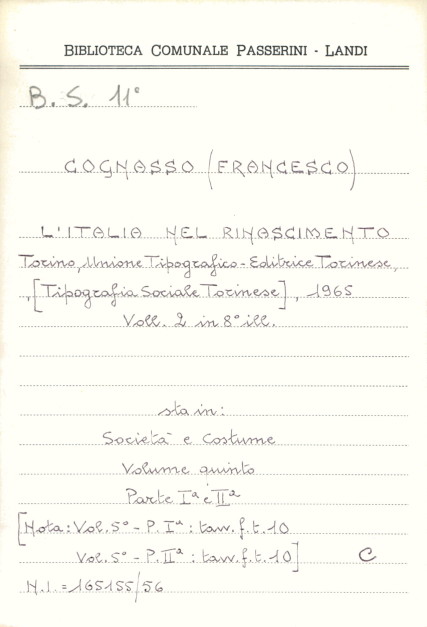 BIBLIOTECA COMUNALE PASSERINI - LANDI
B. S. 11°
COGNASSO (FRANCESCO)
L'ITALIA NEL RINASCIMENTO
Torino, Unione Tipografico-Editrice Torinese,
,[Tipografia Sociale Torinese], 1965
Voll. 2 in 8° ill.
sta in:
Società e Costume
Volume quinto
Parte Iª e IIª
[Nota: Vol. 5° - P. Iª : tavv. f. t. 10
Vol. 5° - P. IIª : tavv. f. t. 10] C
N.I. = 165155/56